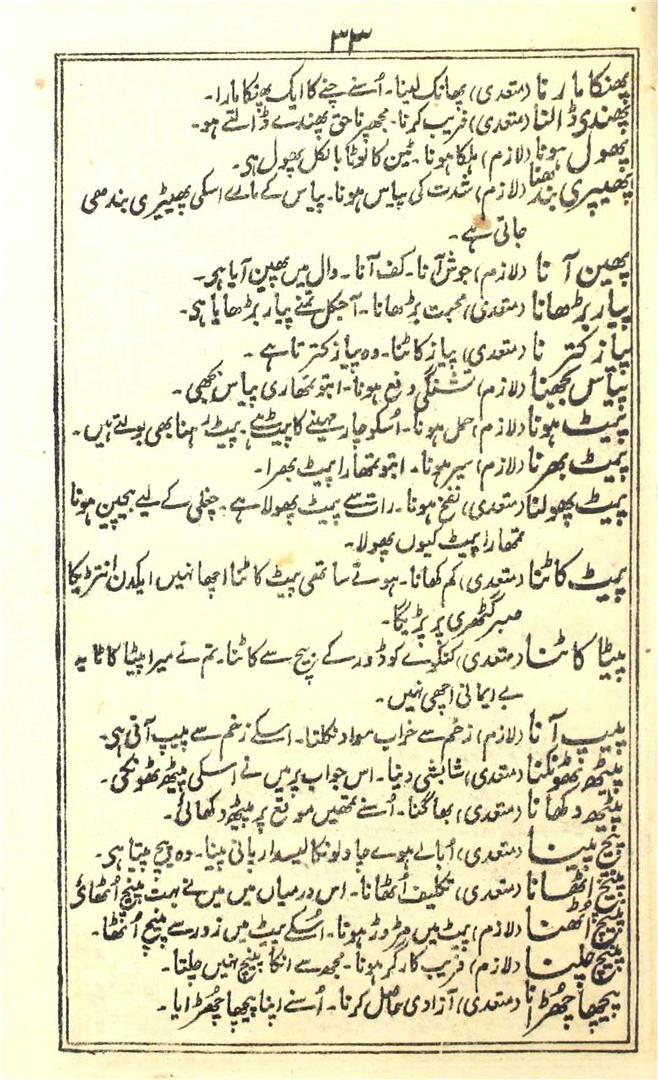 ۳۳
پھنکا مارنا (متعدی) پھانک لینا۔ اُسنے چنے کا ایک پھنکا مارا۔
پھندی ڈالنا (متعدی) فریب کرنا۔ مجھپر ناحق پھندے ڈالتے ہو۔
پھول ہونا (لازم) ہلکا ہونا۔ ٹین کا لوٹا بالکل پھول ہی۔
پھیپری بندھنا (لازم) شدت کی پیاس ہونا۔ پیاس کے مارے اسکی پھیپڑی بندھی
جاتی ہے۔
پھین آنا (لازم) جوش آنا۔ کف آنا۔ دال میں پھین آیا ہی۔
پیار بڑھانا (متعدی) محبت بڑھانا۔ آجکل تمنے پیار بڑھایا ہی۔
پیاز کترنا (متعدی) پیاز کاٹنا۔ وہ پیاز کترتا ہے۔
پیاس بجھنا (لازم) تشنگی دفع ہونا۔ ابتو تمھاری پیاس بجھی۔
پیٹ ہونا (لازم) حمل ہونا۔ اُسکو چار مہینے کا پیٹ ہے۔ پیٹ رہنا بھی بولتے ہیں۔
پیٹ بھرنا (لازم) سیر ہونا۔ ابتو تمھارا پیٹ بھرا۔
پیٹ پھولنا (متعدی) نفخ ہونا۔ رات سے پیٹ پھولا ہے۔ چغلی کے لیے بیچین ہونا
تمھارا پیٹ کیوں پھولا۔
پیٹ کاٹنا (متعدی) کم کھانا۔ ہوتے ساتھی پیٹ کاٹنا اچھا نہیں ایکدن انتڑیکا
صبر گٹھری پر پڑیگا۔
پیٹا کاٹنا (متعدی) کنکوے کو ڈور کے بیچ سے کاٹنا۔ تم نے میرا پیٹا کاٹا یہ
بے ایمانی اچھی نہیں۔
پیپ آنا (لازم) زخم سے خراب مواد نکلنا۔ اسکے زخم سے پیپ آتی ہی۔
پیٹھ ٹھونکنا (متعدی) شابشی دینا۔ اس جواب پر میں نے اسکی پیٹھ ٹھونکی۔
پیٹھ دکھانا (متعدی) بھاگنا۔ اُسنے تمھیں موقع پر پیٹھ دکھائی۔
پیچ پینا (متعدی) اُبالے ہوے چاولونکا لیسدار پانی پینا۔ وہ پیچ پیتا ہی۔
پیچ اُٹھانا (متعدی) تکلیف اُٹھانا۔ اس درمیاں میں میں نے بہت پیچ اُٹھائی
پیچ اُٹھنا (لازم) پیٹ میں مڑوڑ ہونا۔ اُسکے پیٹ میں زور سے پیچ اُٹھا۔
پیچ چلنا (لازم) فریب کارگر ہونا۔ مجھ سے انکا پیچ نہیں چلتا۔
پیچھا چھڑانا (متعدی) آزادی حاصل کرنا۔ اُسنے اپنا پیچھا چھڑایا۔